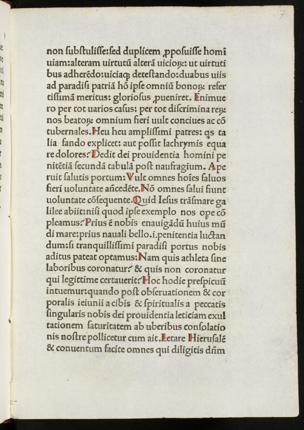 non substulisse: sed duplicem ꝓposuisse homi
uiam: alteram uirtutũ alterã uicioꝝ: ut uirtuti
bus adherẽdo: uiciaqꝫ detestando: duabus uiis
ad paradisi patriã hõ ipse omniũ bonoꝝ refer
tissimã meritus: gloriosus ꝓueniret. Enimue
ro per tot uarios casus: per tot discrimina reꝝ:
nos beatoꝝ omnium fieri uult conciues ac cõ
tubernales. Heu heu amplissimi patres: qs ta
lia fando explicet: aut possit lachrymis equa
re dolores? Dedit dei prouidentia homini pe
nitẽtiã secundã tabulã post naufragium. A pe
ruit salutis portum: Vult omnes hoĩes saluos
fieri uoluntate añcedẽte. Nõ omnes salui fiunt
uoluntate cõsequente. Quid Iesus trãsmare ga
lilee abiit nisi quod ipse exemplo nos ope cõ
pleamus? Prius ẽ nobis enauigãdũ huius mũ
di mare: prius nauali bello .i. penitentia luctan
dum: si tranquillissimi paradisi portus nobis
aditus pateat optamus: Nam quis athleta sine
laboribus coronatur? & quis non coronatur
qui legittime certauerit? Hoc hodie prespicuũ
intuemur: quando post obseruationem & cor
poralis ieiunii a cibis & spiritualis a peccatis
singularis nobis dei prouidentia leticiam exul
tationem saturitatem ab uberibus consolatio
nis nostre pollicetur cum ait. Letare Hierusalẽ
& conuentum facite omnes qui diligitis dñm